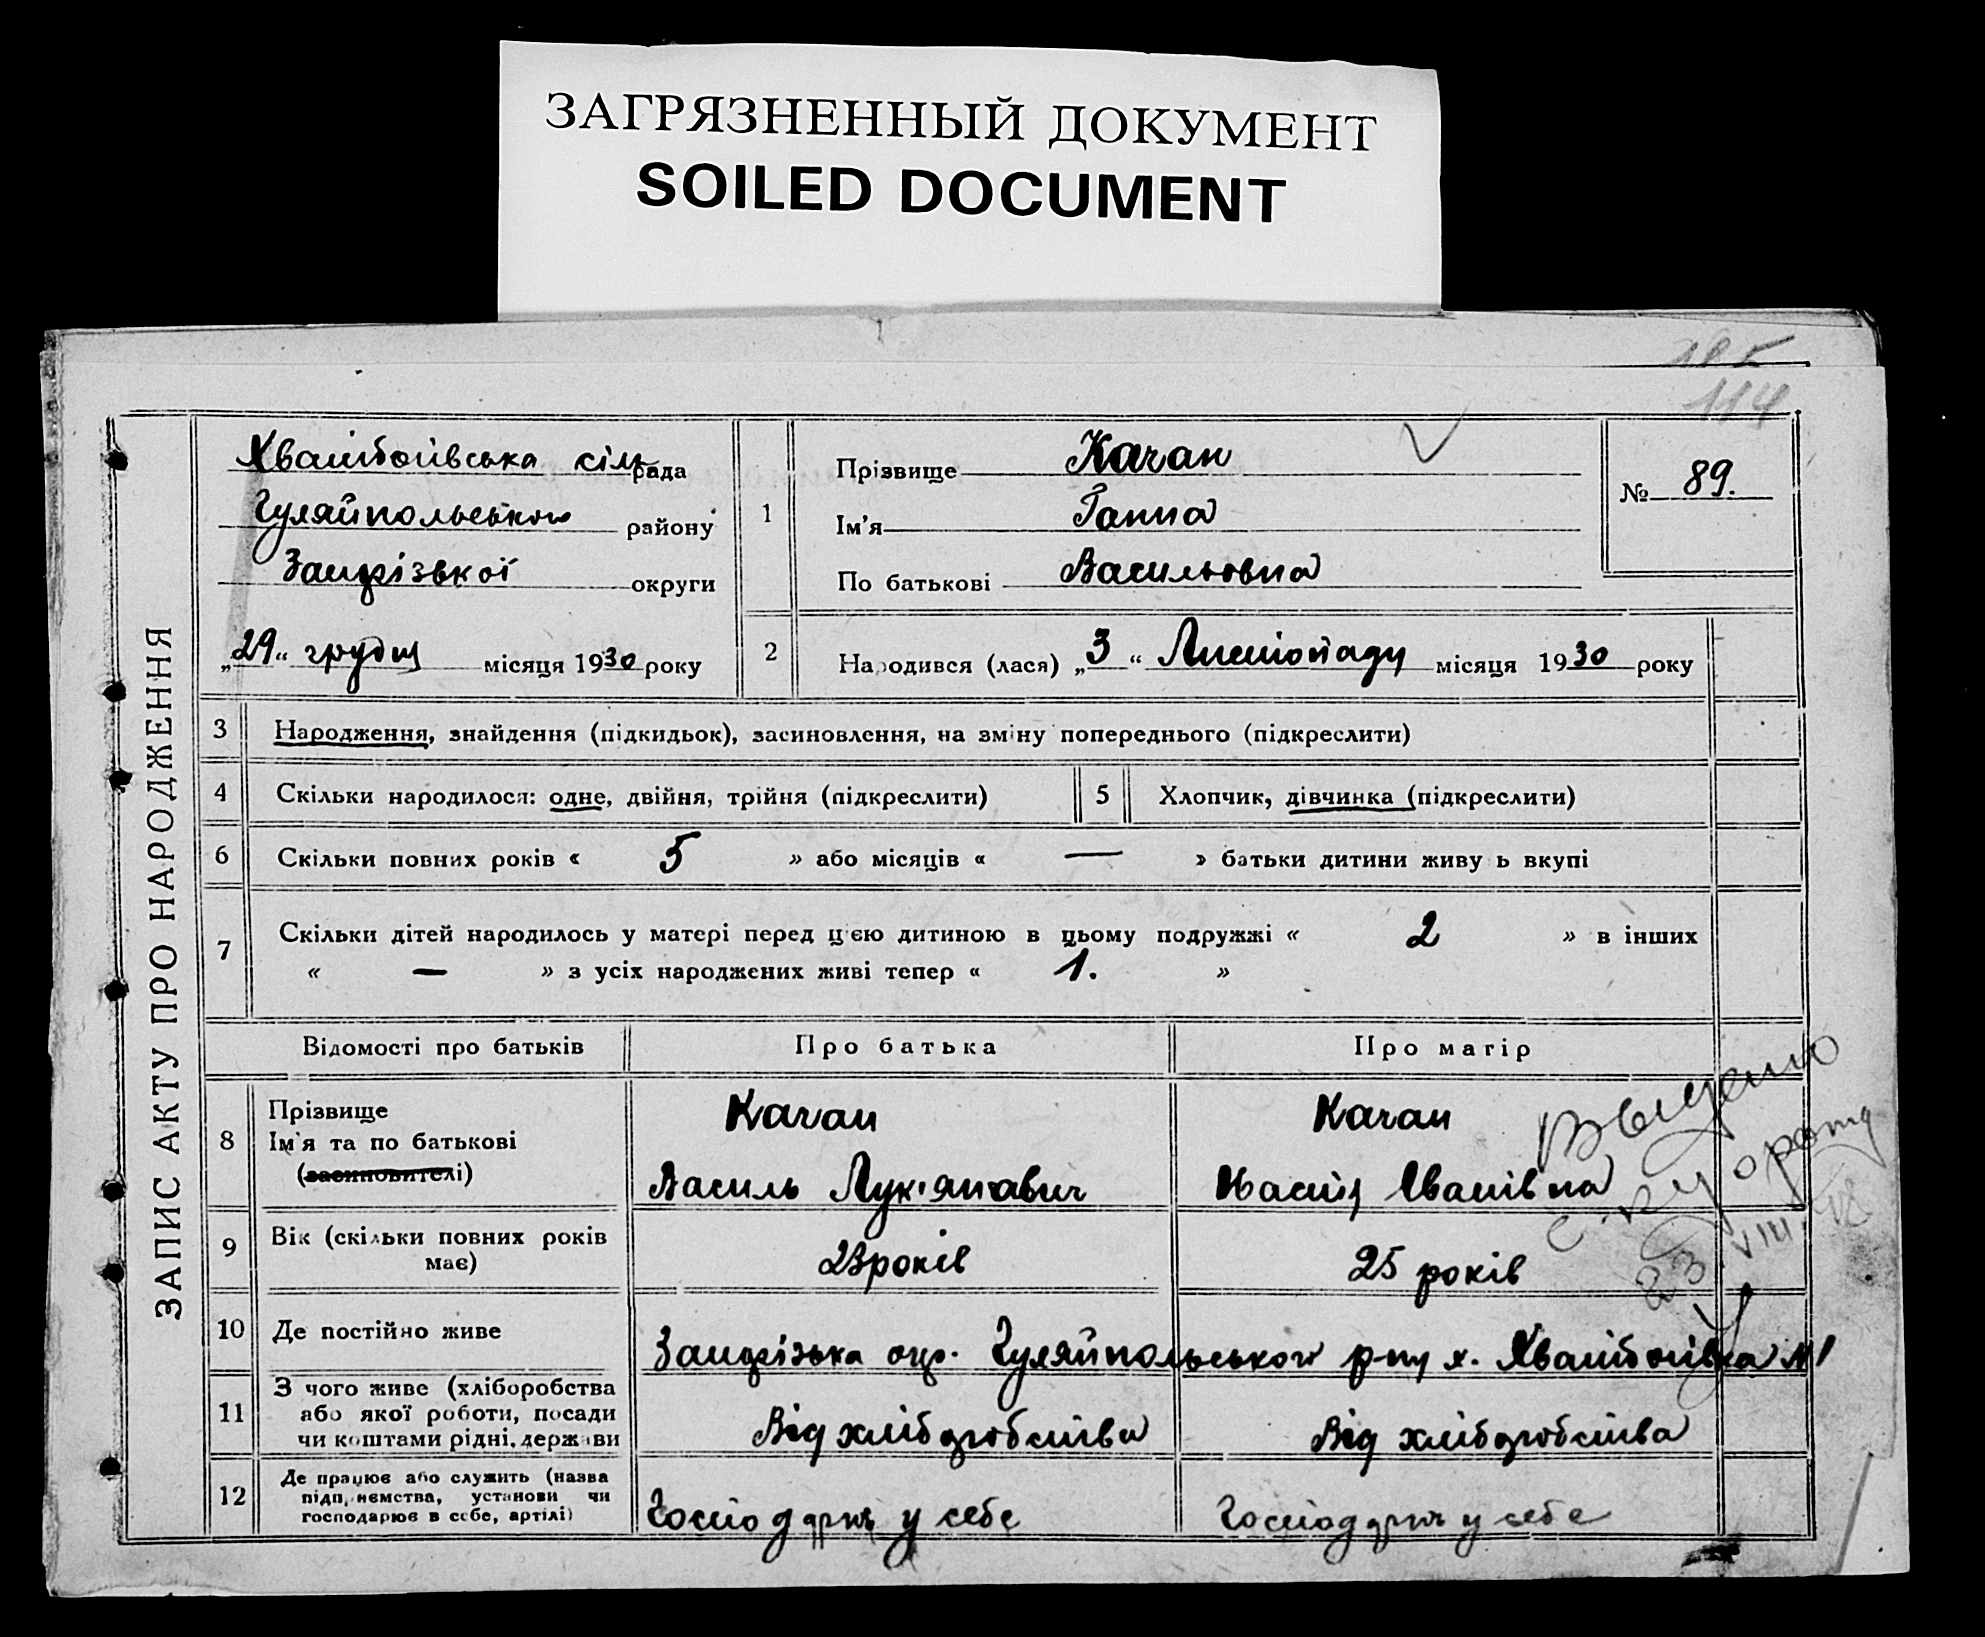 ЗАГРЯЗНЕННЫЙ ДОКУМЕНТ
SOILED DOCUMENT
114
ЗАПИС АКТУ ПРО НАРОДЖЕННЯ
сільрада
Гуляйпольського району
округи
„29“ грудня місяця 1930 року
1
Прізвище Качан
Ім’я Ганна
По батькові Васильовна
№ 89.
2
Народився (лася) „3“ Листопаду місяця 1930 року
3 Народження, знайдення (підкидьок), засиновлення, на зміну попереднього (підкреслити)
4 Скільки народилося: одне, двійня, трійня (підкреслити)
5 Хлопчик, дівчинка (підкреслити)
6 Скільки повних років « 5 » або місяців « — » батьки дитини живу ь вкупі
7 Скільки дітей народилось у матері перед цією дитиною в цьому подружжі « 2 » в інших
« — » з усіх народжених живі тепер « 1. »
Відомості про батьків
Про батька
Про матір
8 Прізвище
Ім’я та по батькові
(засиновителі)
Качан
Василь Лук'янович
Качан
Настя Іванівна
9 Вік (скільки повних років
має)
23 років
25 років
10 Де постійно живе
Гуляйпольського р-ну х. №1
11 З чого живе (хліборобства
або якої роботи, посади
чи коштами рідні, держави
Від хліборобства
Від хліборобства
12 Де працює або служить (назва
підприємства, установи чи
господарює в себе, артілі)
Господарює у себе
Господарює у себе